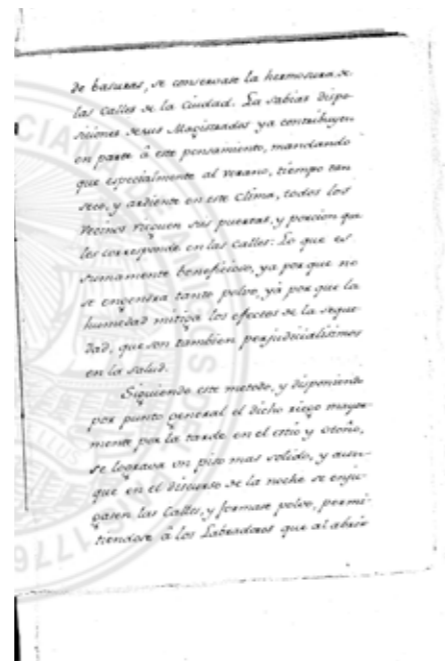 de basuras, se conservase la hermosura de
las Calles de la Ciudad. La sabias dispo-
siciones de sus Magistrados ya contribuyen
en parte â este pensamiento, mandando
que especialmente al verano, tiempo tan
seco, y ardiente en este Clima, todos los
Vecinos rieguen sus puertas, y porcion que
les corresponde en las Calles: Lo que es
sumamente beneficioso, ya por que no
se engendra tanto polvo, yá por que la
humedad mitiga los efectos de la seque-
dad, que son tambien perjudicialísimos
en la salud.
Siguiendo este metodo, y disponiendo
por punto general el dicho riego mayor-
mente por la tarde en el estio y otoño,
se lograva un piso mas solido, y aun-
que en el discurso de la noche se enju-
gasen las Calles, y formase polvo, permi-
tiendose â los Labradores que al abrir
1776